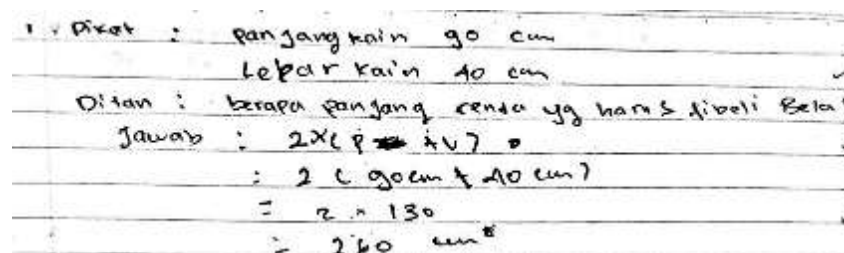 1. Diket : panjang kain 90 cm
Lebar kain 40 cm
Ditan : berapa panjang renda yg harus dibeli Bela
Jawab : 2x(p + l)
: 2 ( 90 cm + 40 cm)
= 2 x 130
= 260 cm